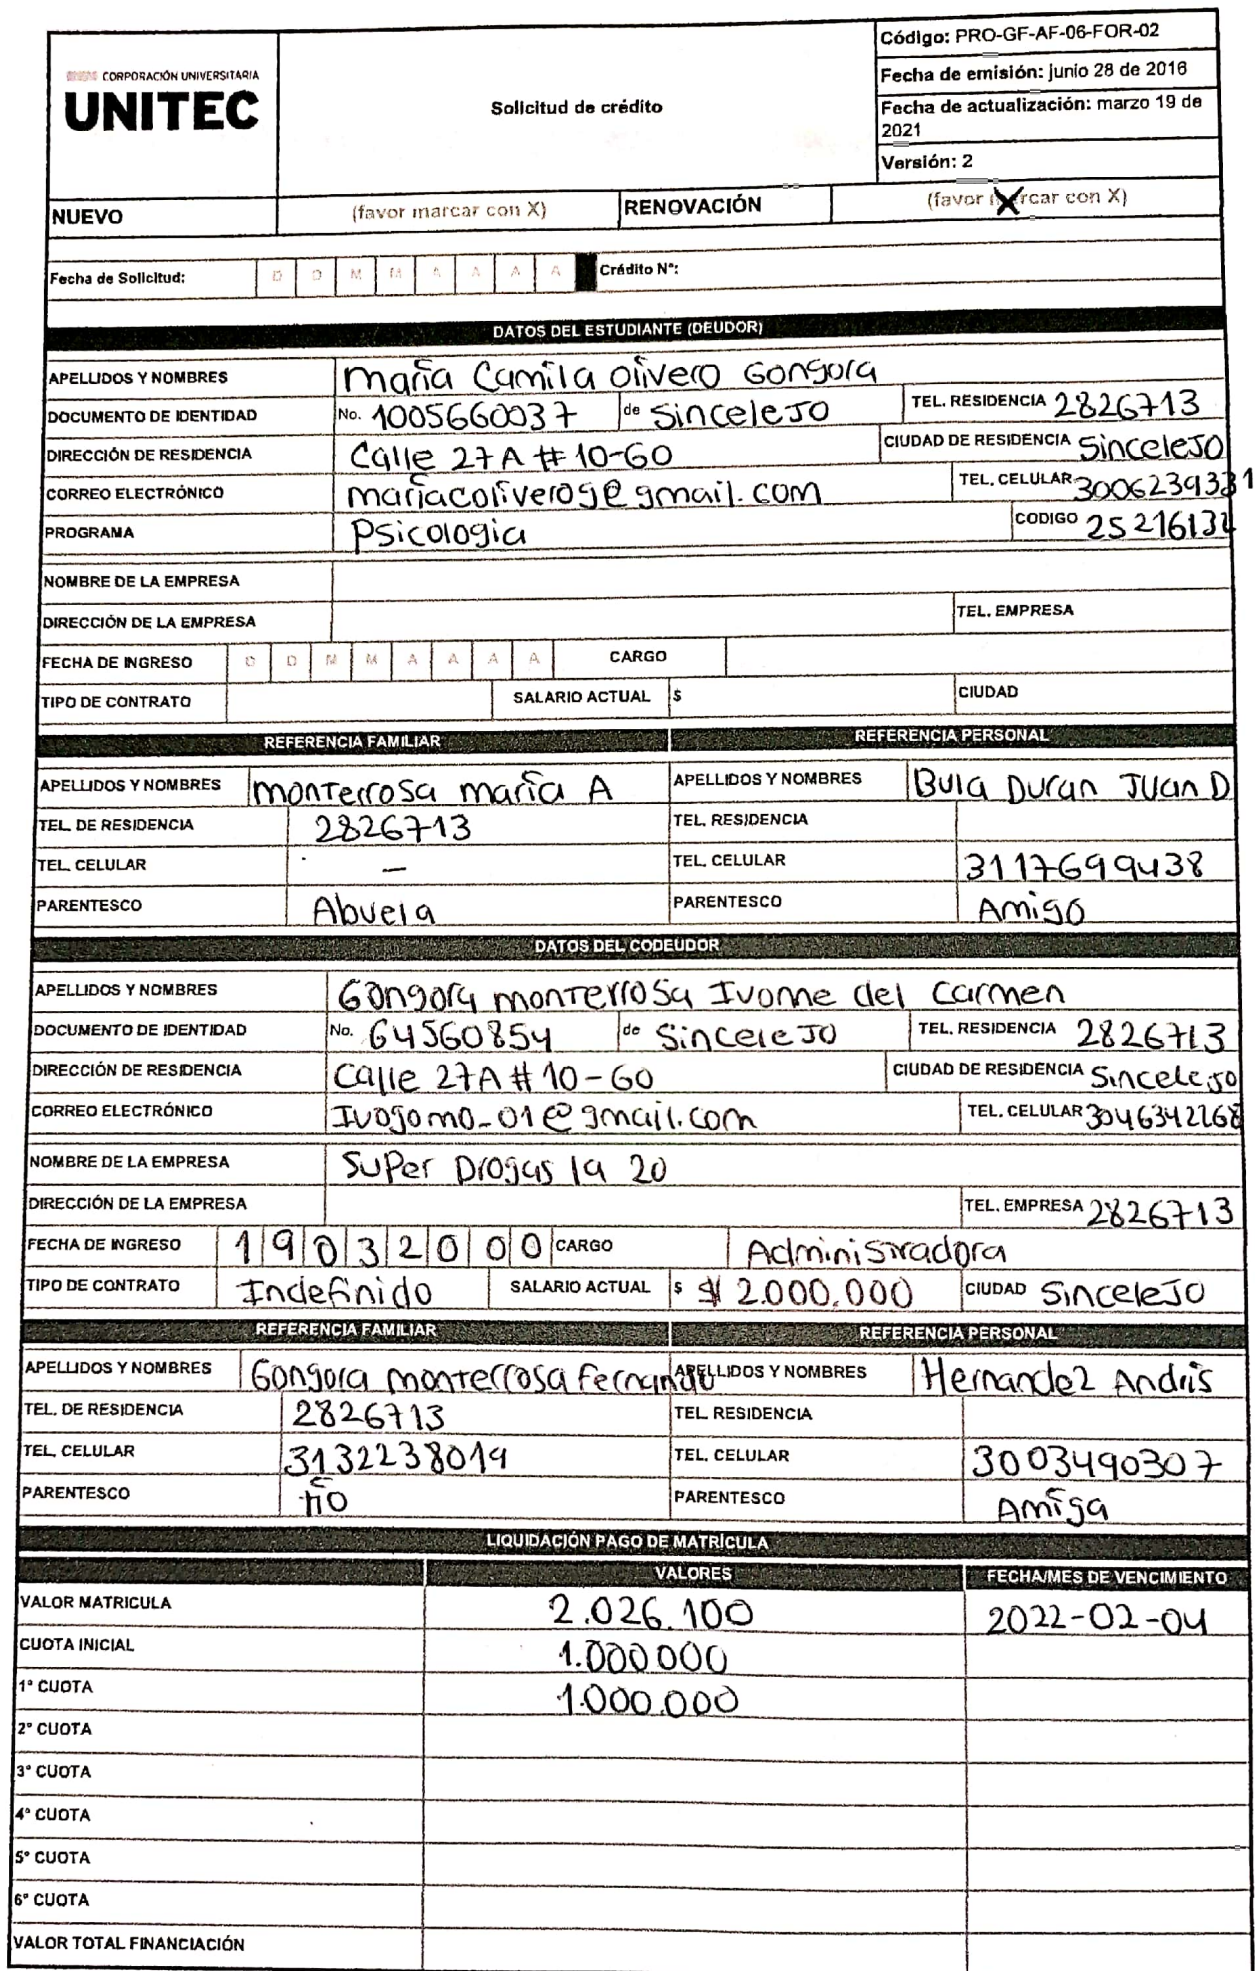 CORPORACIÓN UNIVERSITARIA
UNITEC
Solicitud de crédito
Código: PRO-GF-AF-06-FOR-02
Fecha de emisión: junio 28 de 2016
Fecha de actualización: marzo 19 de
2021
Versión: 2
NUEVO (favor marcar con X) RENOVACIÓN (favor marcar con X) X
Fecha de Solicitud: D D M M A A A A Crédito N°:
DATOS DEL ESTUDIANTE (DEUDOR)
APELLIDOS Y NOMBRES María Camila Olivero Gongora
DOCUMENTO DE IDENTIDAD No. 1005660037 de Sincelejo TEL. RESIDENCIA 2826713
DIRECCIÓN DE RESIDENCIA Calle 27A # 10-60 CIUDAD DE RESIDENCIA Sincelejo
CORREO ELECTRÓNICO mariacoliverog@gmail.com TEL. CELULAR
PROGRAMA Psicologia CODIGO
NOMBRE DE LA EMPRESA
DIRECCIÓN DE LA EMPRESA TEL. EMPRESA
FECHA DE INGRESO D D M M A A A A CARGO
TIPO DE CONTRATO SALARIO ACTUAL $ CIUDAD
REFERENCIA FAMILIAR REFERENCIA PERSONAL
APELLIDOS Y NOMBRES Monterrosa María A APELLIDOS Y NOMBRES Bula Duran Juan D
TEL. DE RESIDENCIA 2826713 TEL. RESIDENCIA
TEL. CELULAR — TEL. CELULAR 3117699438
PARENTESCO Abuela PARENTESCO Amigo
DATOS DEL CODEUDOR
APELLIDOS Y NOMBRES Gongora Monterrosa Ivonne del Carmen
DOCUMENTO DE IDENTIDAD No. 64560854 de Sincelejo TEL. RESIDENCIA 2826713
DIRECCIÓN DE RESIDENCIA Calle 27A # 10-60 CIUDAD DE RESIDENCIA Sincelejo
CORREO ELECTRÓNICO Ivogomo_01@gmail.com TEL. CELULAR 3046342268
NOMBRE DE LA EMPRESA Super Drogas la 20
DIRECCIÓN DE LA EMPRESA TEL. EMPRESA 2826713
FECHA DE INGRESO 1 9 0 3 2 0 0 0 CARGO Administradora
TIPO DE CONTRATO Indefinido SALARIO ACTUAL $ $ 2.000.000 CIUDAD Sincelejo
REFERENCIA FAMILIAR REFERENCIA PERSONAL
APELLIDOS Y NOMBRES Gongora Monterrosa Fernando APELLIDOS Y NOMBRES Hernandez Andris
TEL. DE RESIDENCIA 2826713 TEL. RESIDENCIA
TEL. CELULAR 3132238019 TEL. CELULAR 3003490307
PARENTESCO tío PARENTESCO Amiga
LIQUIDACIÓN PAGO DE MATRÍCULA
VALORES FECHA/MES DE VENCIMIENTO
VALOR MATRICULA 2.026.100 2022-02-04
CUOTA INICIAL 1.000.000
1ª CUOTA 1.000.000
2ª CUOTA
3ª CUOTA
4ª CUOTA
5ª CUOTA
6ª CUOTA
VALOR TOTAL FINANCIACIÓN